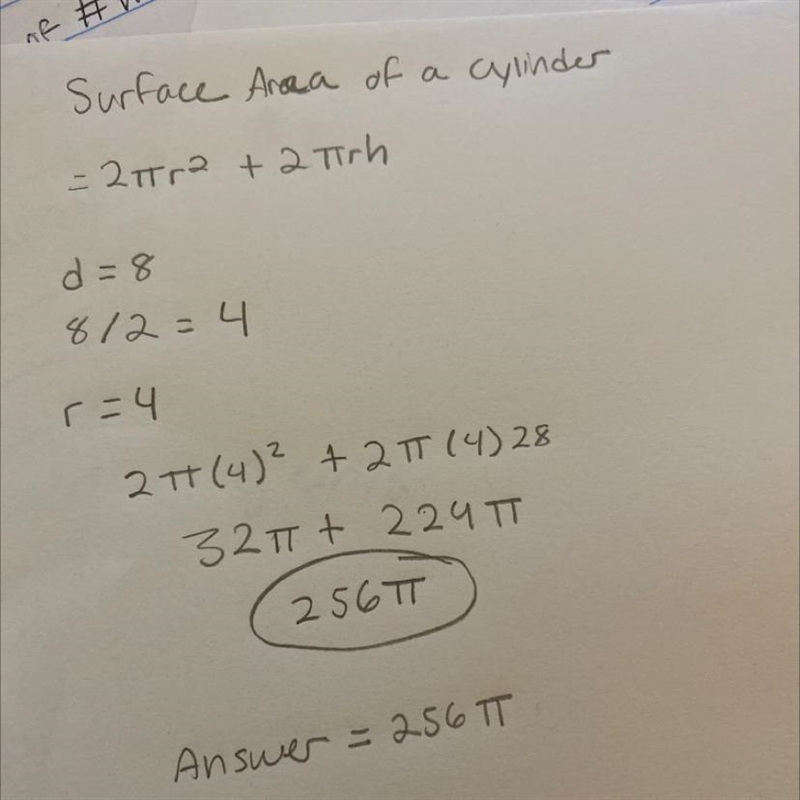 of #
Surface Area of a cylinder
= 2πr² + 2πrh
d = 8
8/2 = 4
r = 4
2π(4)² + 2π(4)28
32π + 224π
256π
Answer = 256π